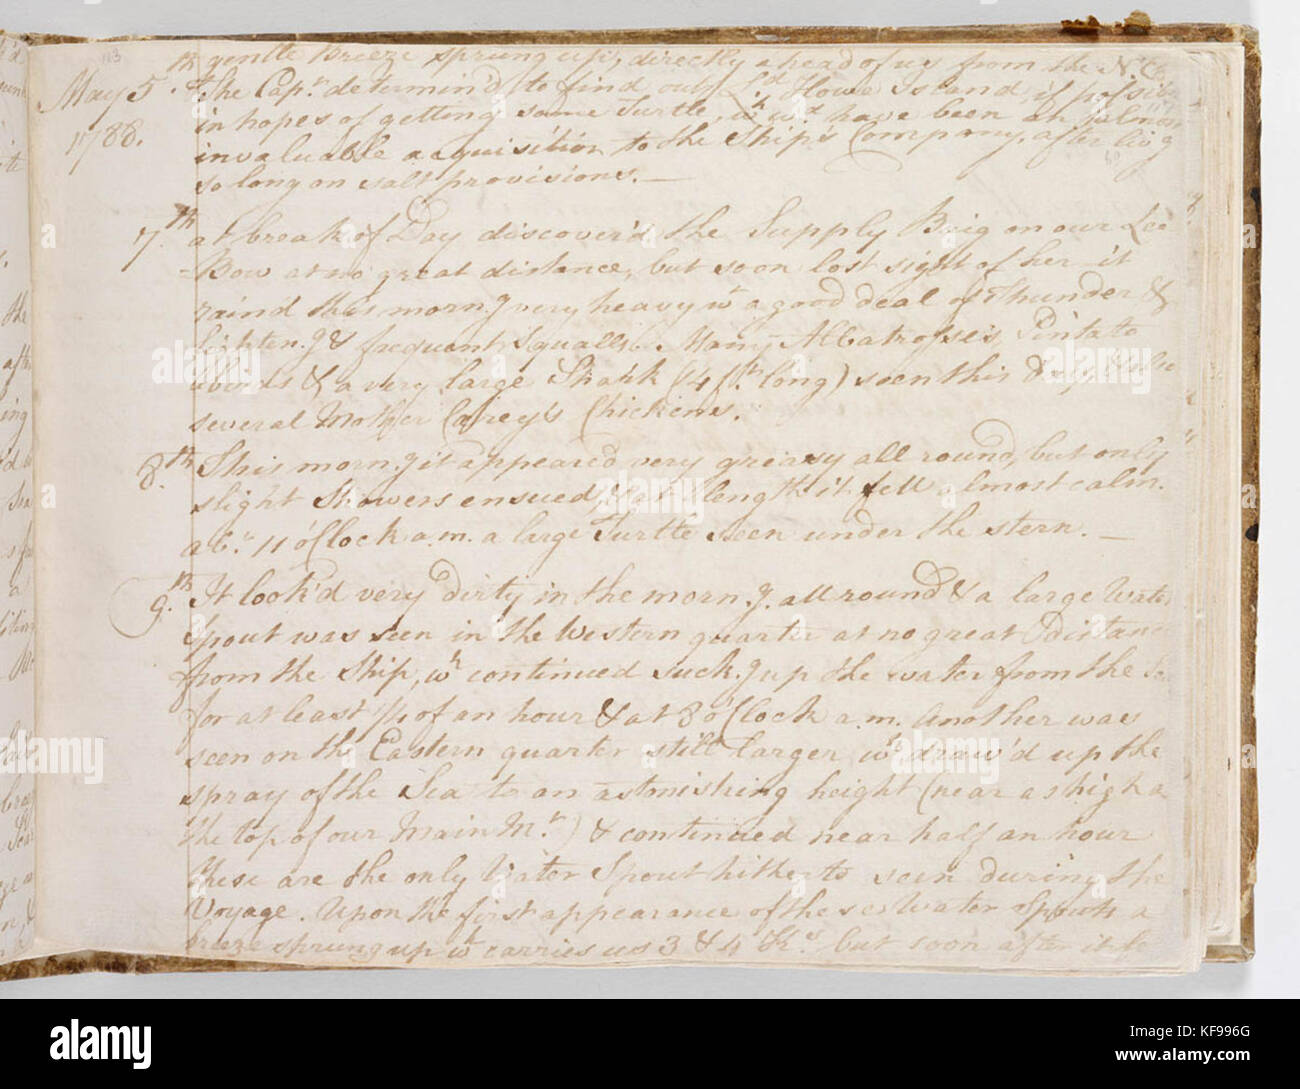 113
May 5.th gentle Breeze sprung up, directly ahead of us from the N.E.
1788. The Capn. determin'd to find out Ld. Howe Island, if possible
in hopes of getting some Turtle, wh. wd. have been an almost
invaluable acquisition to the Ship's Company, after livg
so long on salt provisions. —
7.th at break of Day discover'd the Supply Brig on our Lee
Bow at no great distance, but soon lost sight of her — it
rain'd this morn.g very heavy wt a good deal of Thunder &
lighten.g & frequant Squalls. Many Albatrosses, Pintato
birds & a very large Shark (14 ft. long) seen this day, & also
several Mother Carey's Chickens.
8.th This morn.g it appeared very greasy all round, but only
slight Showers ensued, & at length it fell almost calm.
abt. 11 o'Clock a.m. a large Turtle seen under the stern. —
9.th It look'd very dirty in the morn.g. all round & a large Water
Spout was seen in the Western quarter at no great distance
from the Ship, wh continued suck.g up the water from the
for at least 1/4 of an hour & at 8 o'Clock a.m. another was
seen on the Eastern quarter still larger, wh draw'd up the
spray of the Sea to an astonishing height (near as high as
the top of our Main Mt.) & continued near half an hour
these are the only Water Spouts hitherto seen during the
Voyage. Upon the first appearance of these Water Spouts a
breeze sprung up wh carries us 3 & 4 Ks. but soon after it fe
alamy
Image ID: KF996G
www.alamy.com